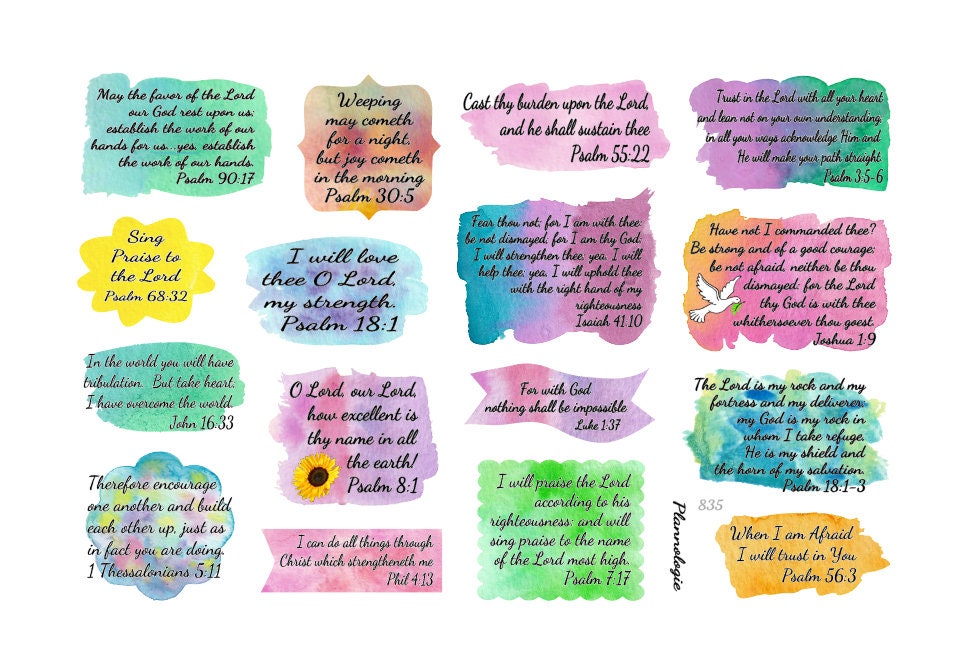 May the favor of the Lord
our God rest upon us;
establish the work of our
hands for us...yes, establish
the work of our hands.
Psalm 90:17
Weeping
may cometh
for a night,
but joy cometh
in the morning
Psalm 30:5
Cast thy burden upon the Lord,
and he shall sustain thee
Psalm 55:22
Trust in the Lord with all your heart
and lean not on your own understanding,
in all your ways acknowledge Him and
He will make your path straight
Psalm 3:5-6
Sing
Praise to
the Lord
Psalm 68:32
I will love
thee O Lord,
my strength.
Psalm 18:1
Fear thou not; for I am with thee:
be not dismayed; for I am thy God:
I will strengthen thee; yea, I will
help thee; yea, I will uphold thee
with the right hand of my
righteousness
Isaiah 41:10
Have not I commanded thee?
Be strong and of a good courage;
be not afraid, neither be thou
dismayed: for the Lord
thy God is with thee
whithersoever thou goest.
Joshua 1:9
In the world you will have
tribulation. But take heart,
I have overcome the world.
John 16:33
O Lord, our Lord,
how excellent is
thy name in all
the earth!
Psalm 8:1
For with God
nothing shall be impossible
Luke 1:37
The Lord is my rock and my
fortress and my deliverer,
my God is my rock in
whom I take refuge,
He is my shield and
the horn of my salvation.
Psalm 18:1-3
Therefore encourage
one another and build
each other up, just as
in fact you are doing.
1 Thessalonians 5:11
I can do all things through
Christ which strengtheneth me
Phil 4:13
I will praise the Lord
according to his
righteousness: and will
sing praise to the name
of the Lord most high.
Psalm 7:17
835
Plannologie
When I am Afraid
I will trust in You
Psalm 56:3